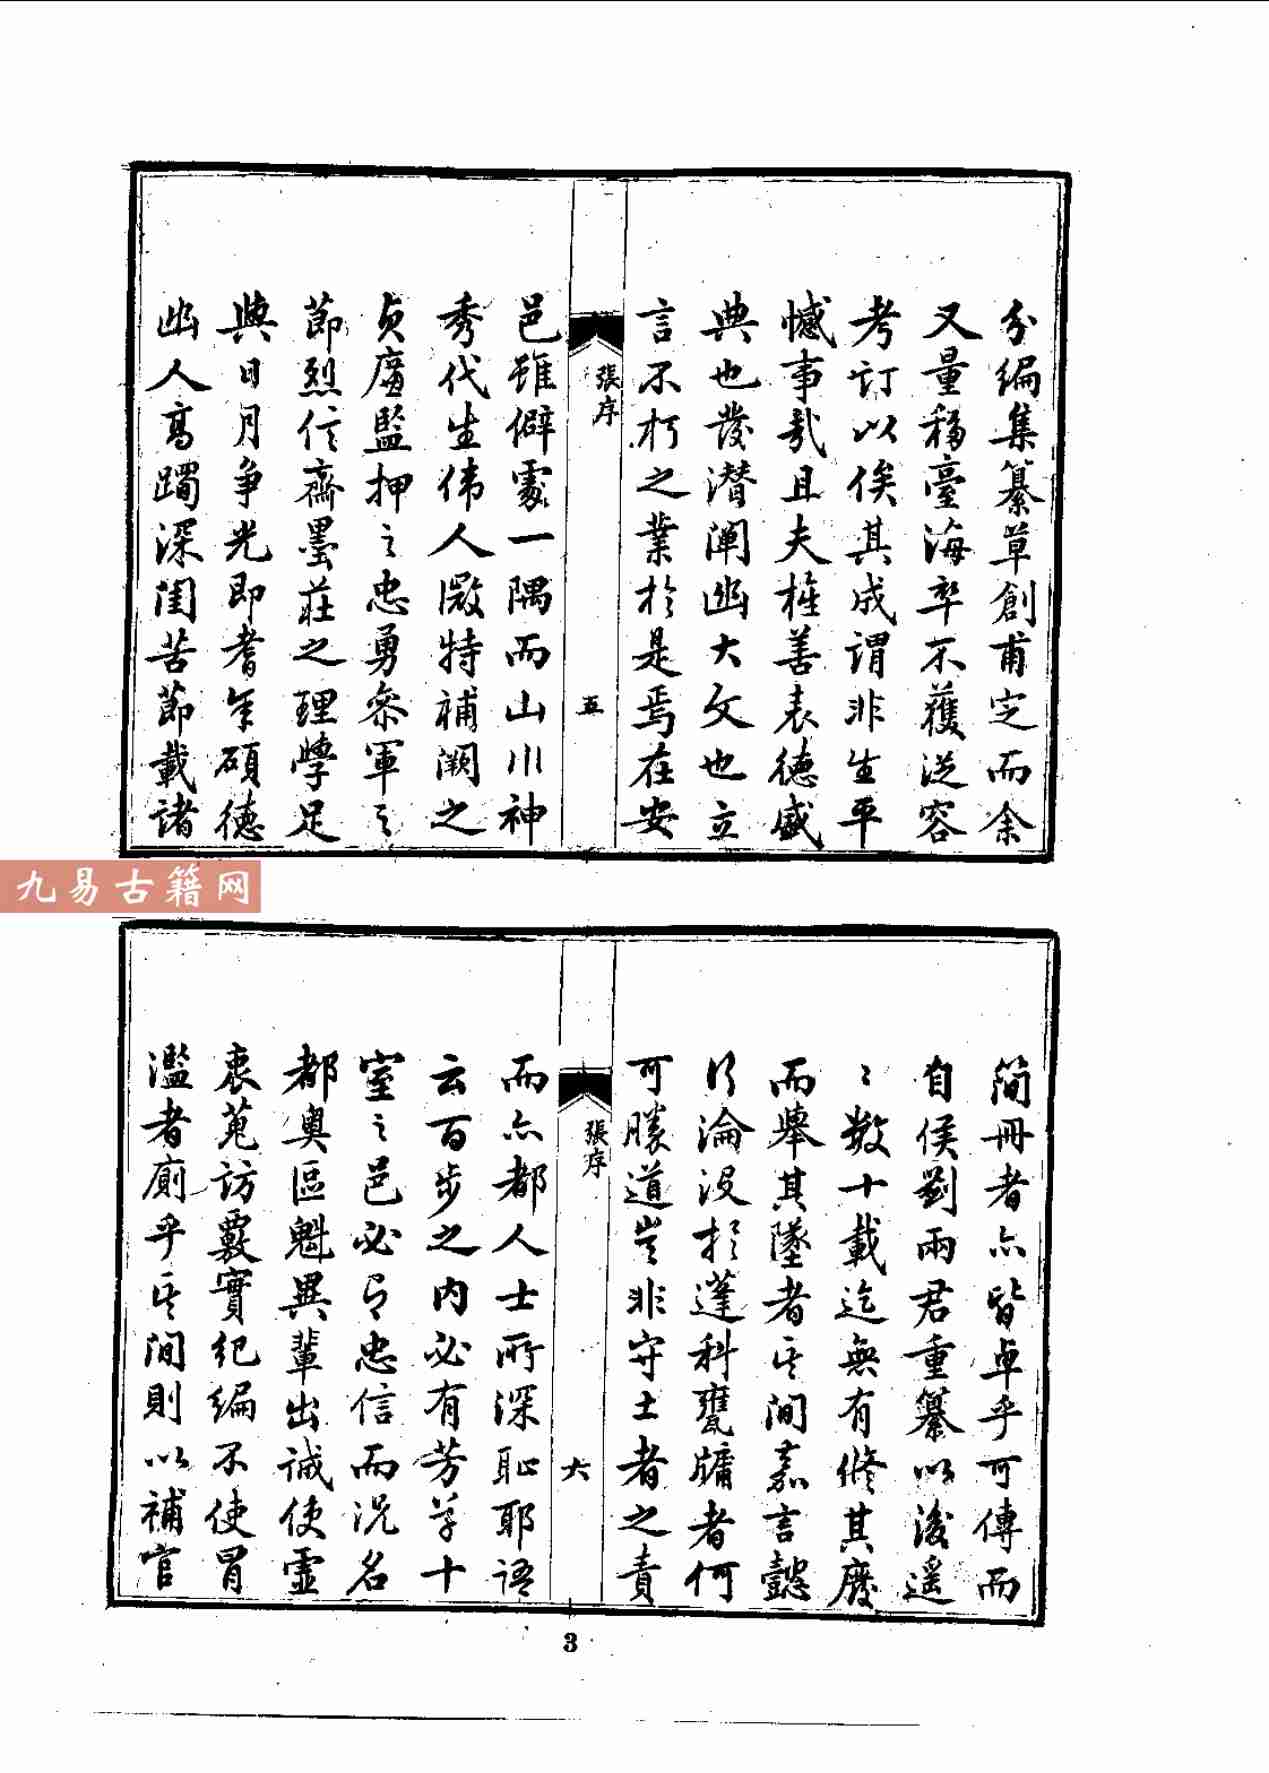 分編集纂草創甫定而余
又量移臺海卒不獲從容
考訂以俟其成謂非生平
憾事哉且夫旌善表德盛
典也發潛闡幽大文也立
言不朽之業於是焉在安
張序
五
邑雖僻處一隅而山川神
秀代生偉人微特補闕之
貞廉監押之忠勇參軍之
節烈信齋墨莊之理學足
與日月爭光即耆年碩德
幽人高躅深閨苦節載諸
九易古籍网
簡冊者亦皆卓乎可傳而
自侯劉兩君重纂以後遥
〻數十載迄無有修其廢
而舉其墜者其間嘉言懿
行淪沒於蓬科甕牖者何
可勝道豈非守土者之責
張序
六
而亦都人士所深恥耶語
云百步之內必有芳草十
室之邑必有忠信而況名
都奧區魁異輩出誠使靈
衷蒐訪覈實紀編不使冒
濫者廁乎其間則以補官
3